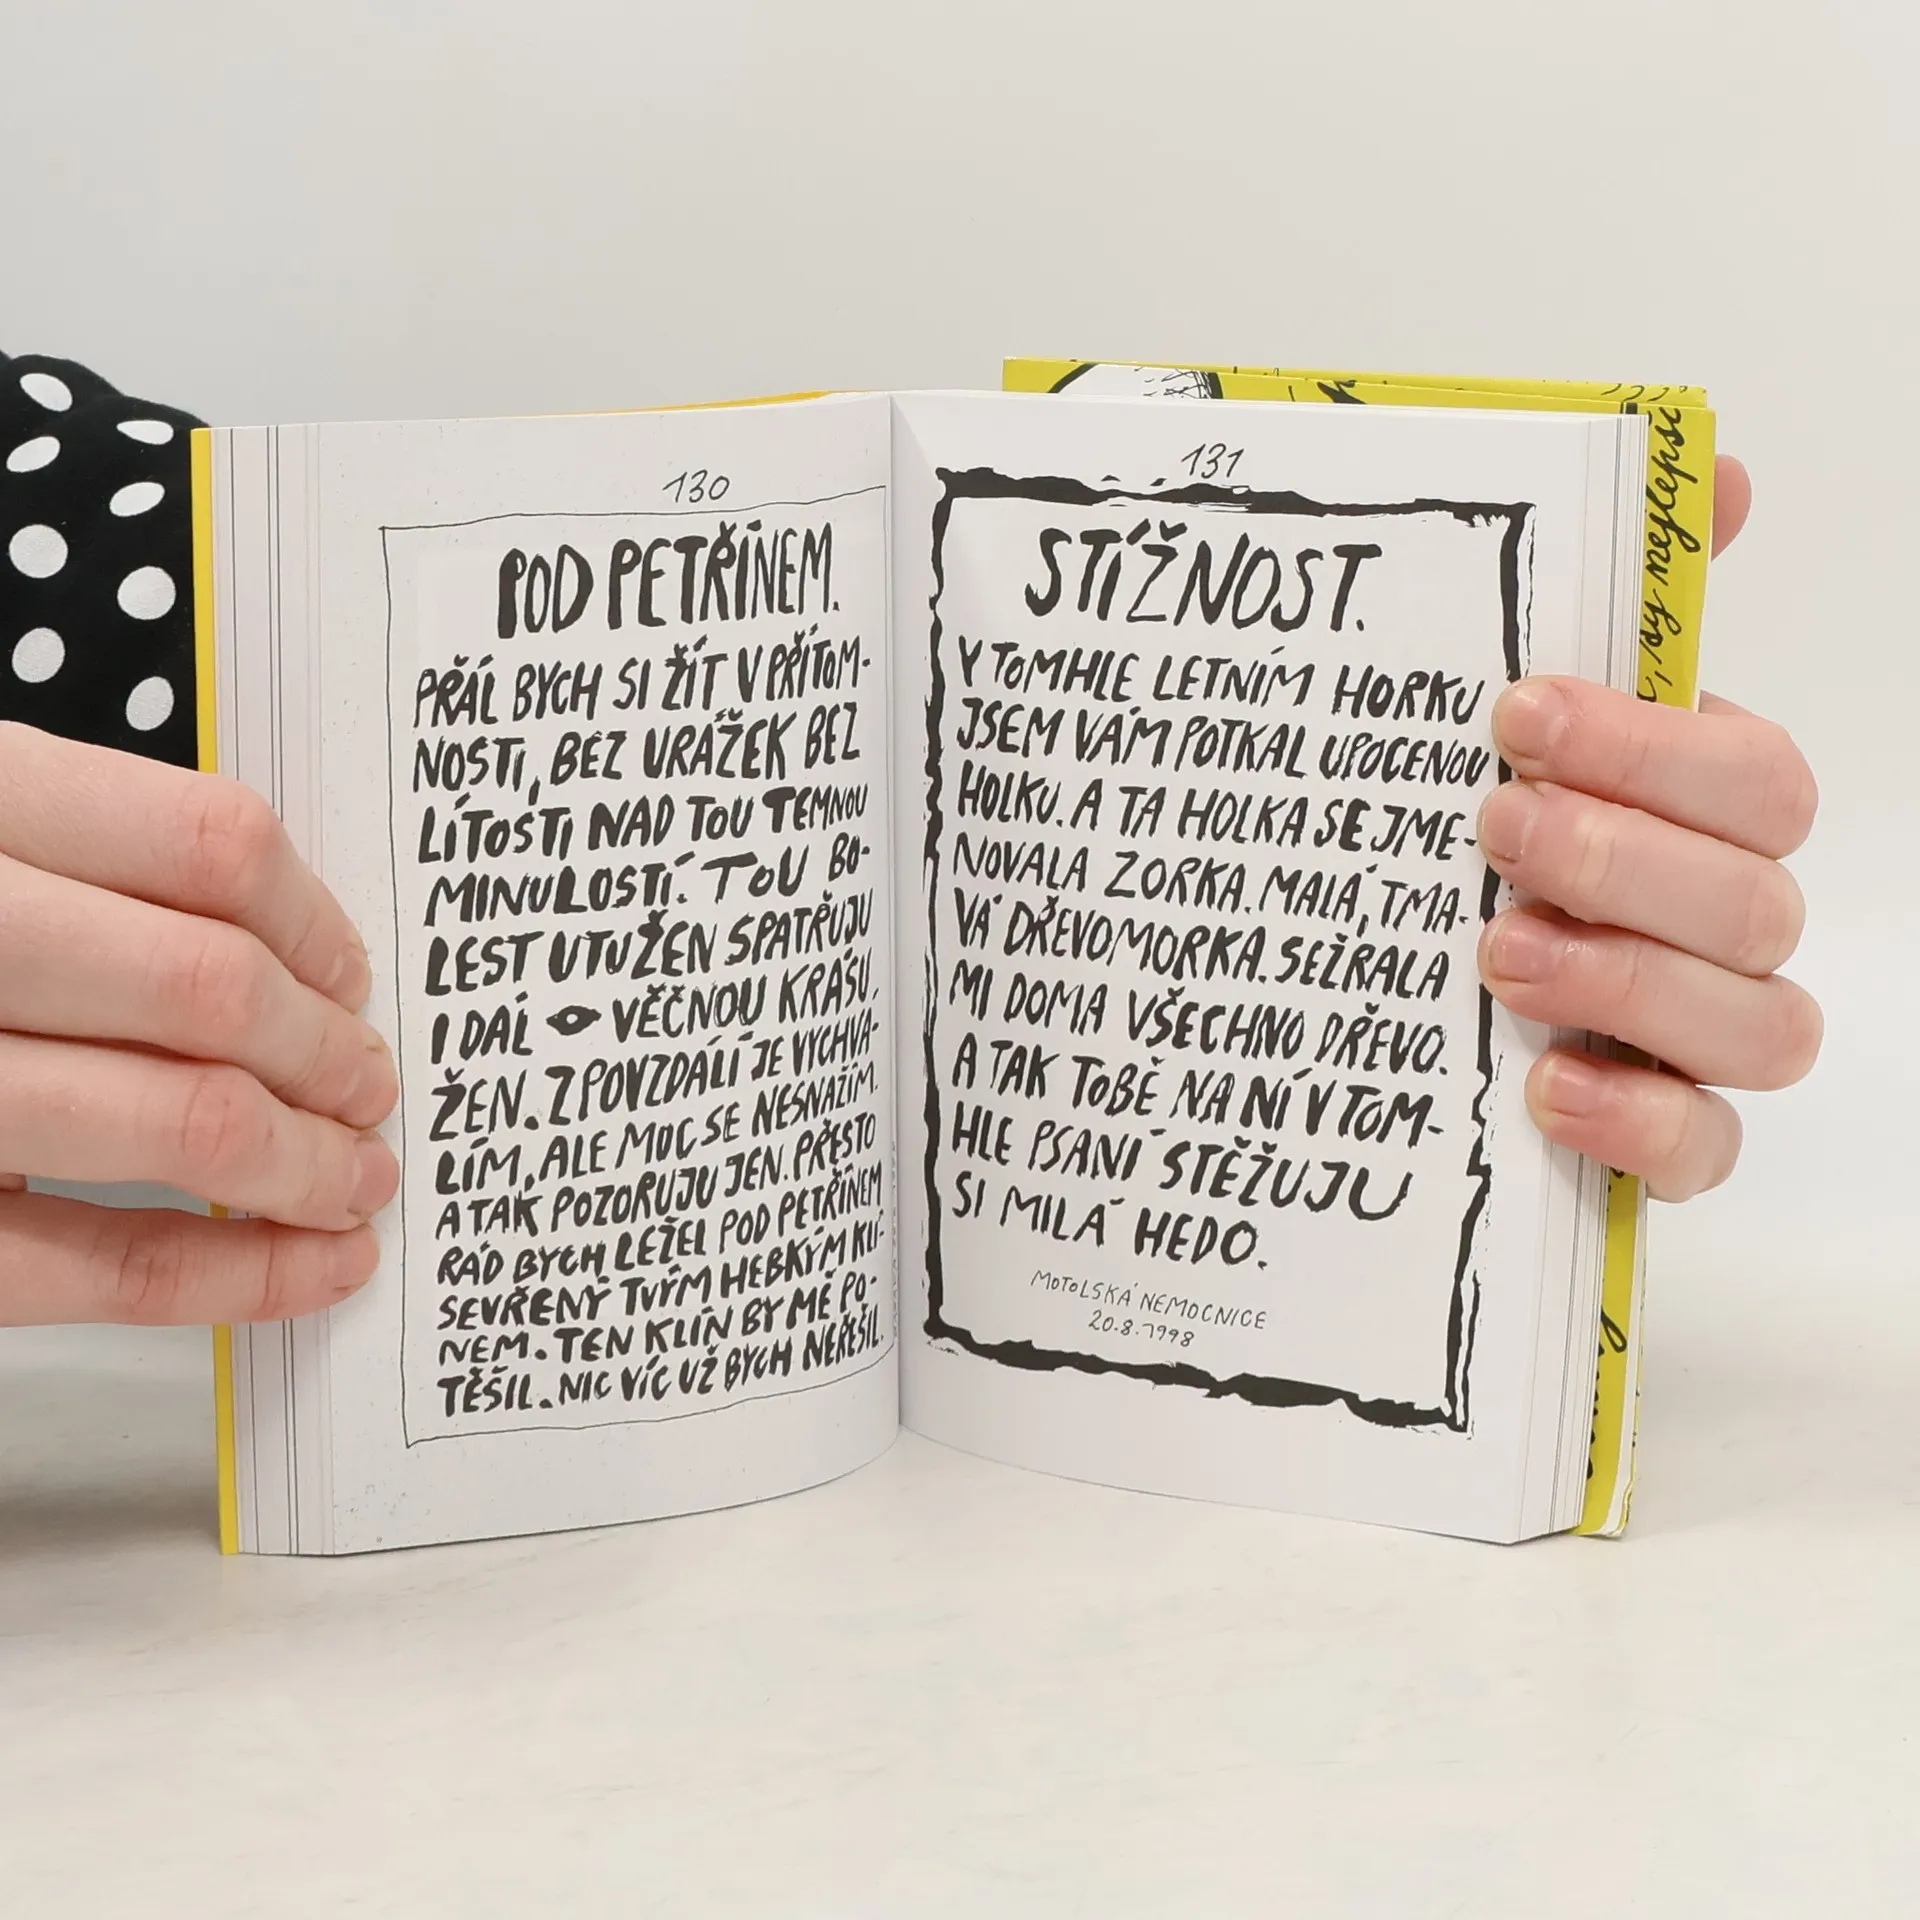 130
POD PETŘÍNEM.
PŘÁL BYCH SI ŽÍT V PŘÍTOM-
NOSTI, BEZ URÁŽEK BEZ
LÍTOSTI NAD TOU TEMNOU
MINULOSTÍ. TOU BO-
LEST UTUŽEN SPATŘUJU
I DÁL VĚČNOU KRÁSU.
ŽEN. Z POVZDÁLÍ JE VYCHVA-
LÍM, ALE MOC SE NESNAŽÍM.
A TAK POZORUJU JEN. PŘESTO
RÁD BYCH LEŽEL POD PETŘÍNEM
SEVŘENÝ TVÝM HEBKÝM KLÍ-
NEM. TEN KLÍN BY MĚ PO-
TĚŠIL. NIC VÍC UŽ BYCH NEŘEŠIL.
131
STÍŽNOST.
Y TOMHLE LETNÍM HORKU
JSEM VÁM POTKAL UPOCENOU
HOLKU. A TA HOLKA SE JME-
NOVALA ZORKA. MALÁ, TMA-
VÁ DŘEVOMORKA. SEŽRALA
MI DOMA VŠECHNO DŘEVO.
A TAK TOBĚ NA NÍ V TOM-
HLE PSANÍ STĚŽUJU
SI MILÁ HEDO.
MOTOLSKÁ NEMOCNICE
20.8.1998
, sy nejlepsi